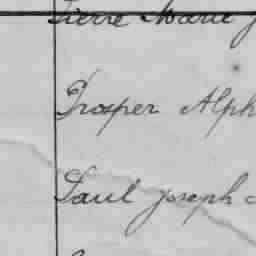 Pierre Marie J
Prosper Alph
Paul Joseph